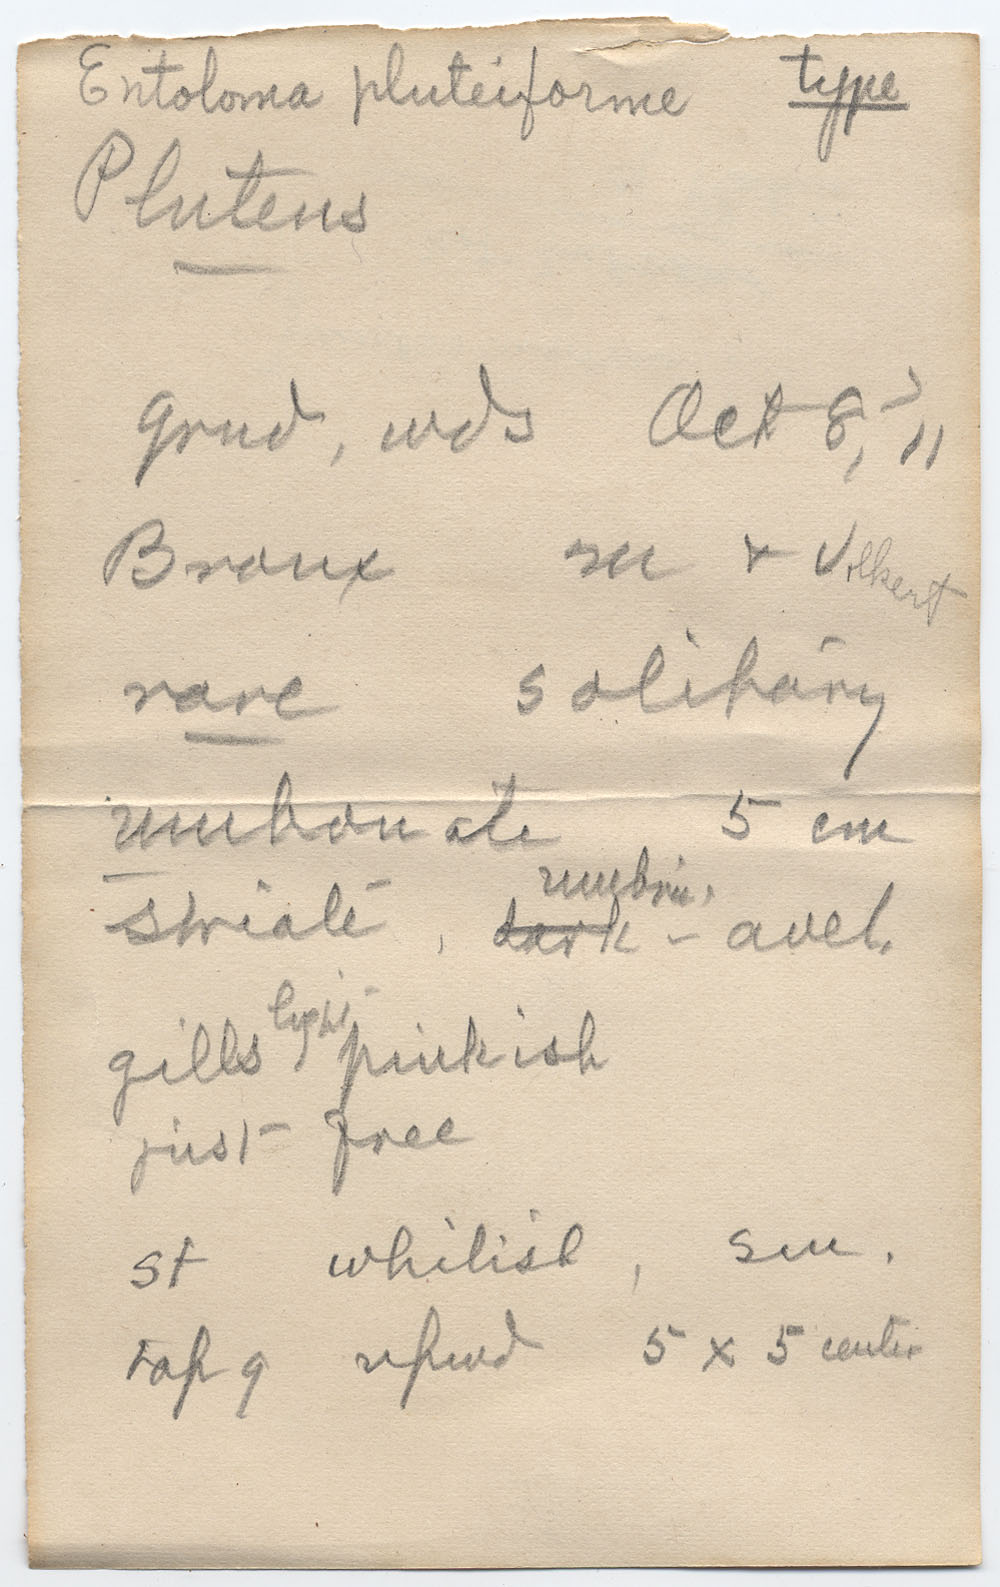 Entoloma pluteiforme type
Pluteus
grnd, wds Oct 8, '11
Bronx m & Volkert
rare solitary
umbonate 5 cm
umbrin.
striate, dark - avel.
light
gills pinkish
just free
st whitish, sm.
tap g upwd 5 x 5 center